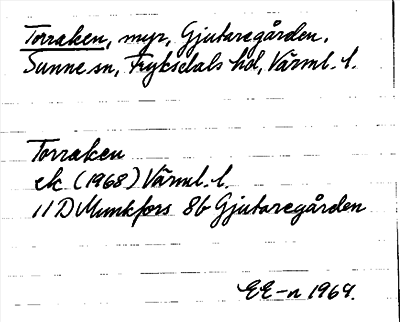 Torraken, myr, Gjutaregården,
Sunne sn, Fryksdals hd, Värml. l.
Torraken
ek (1968) Värml. l.
11D Munkfors 8b Gjutaregården
EE-n 1969.